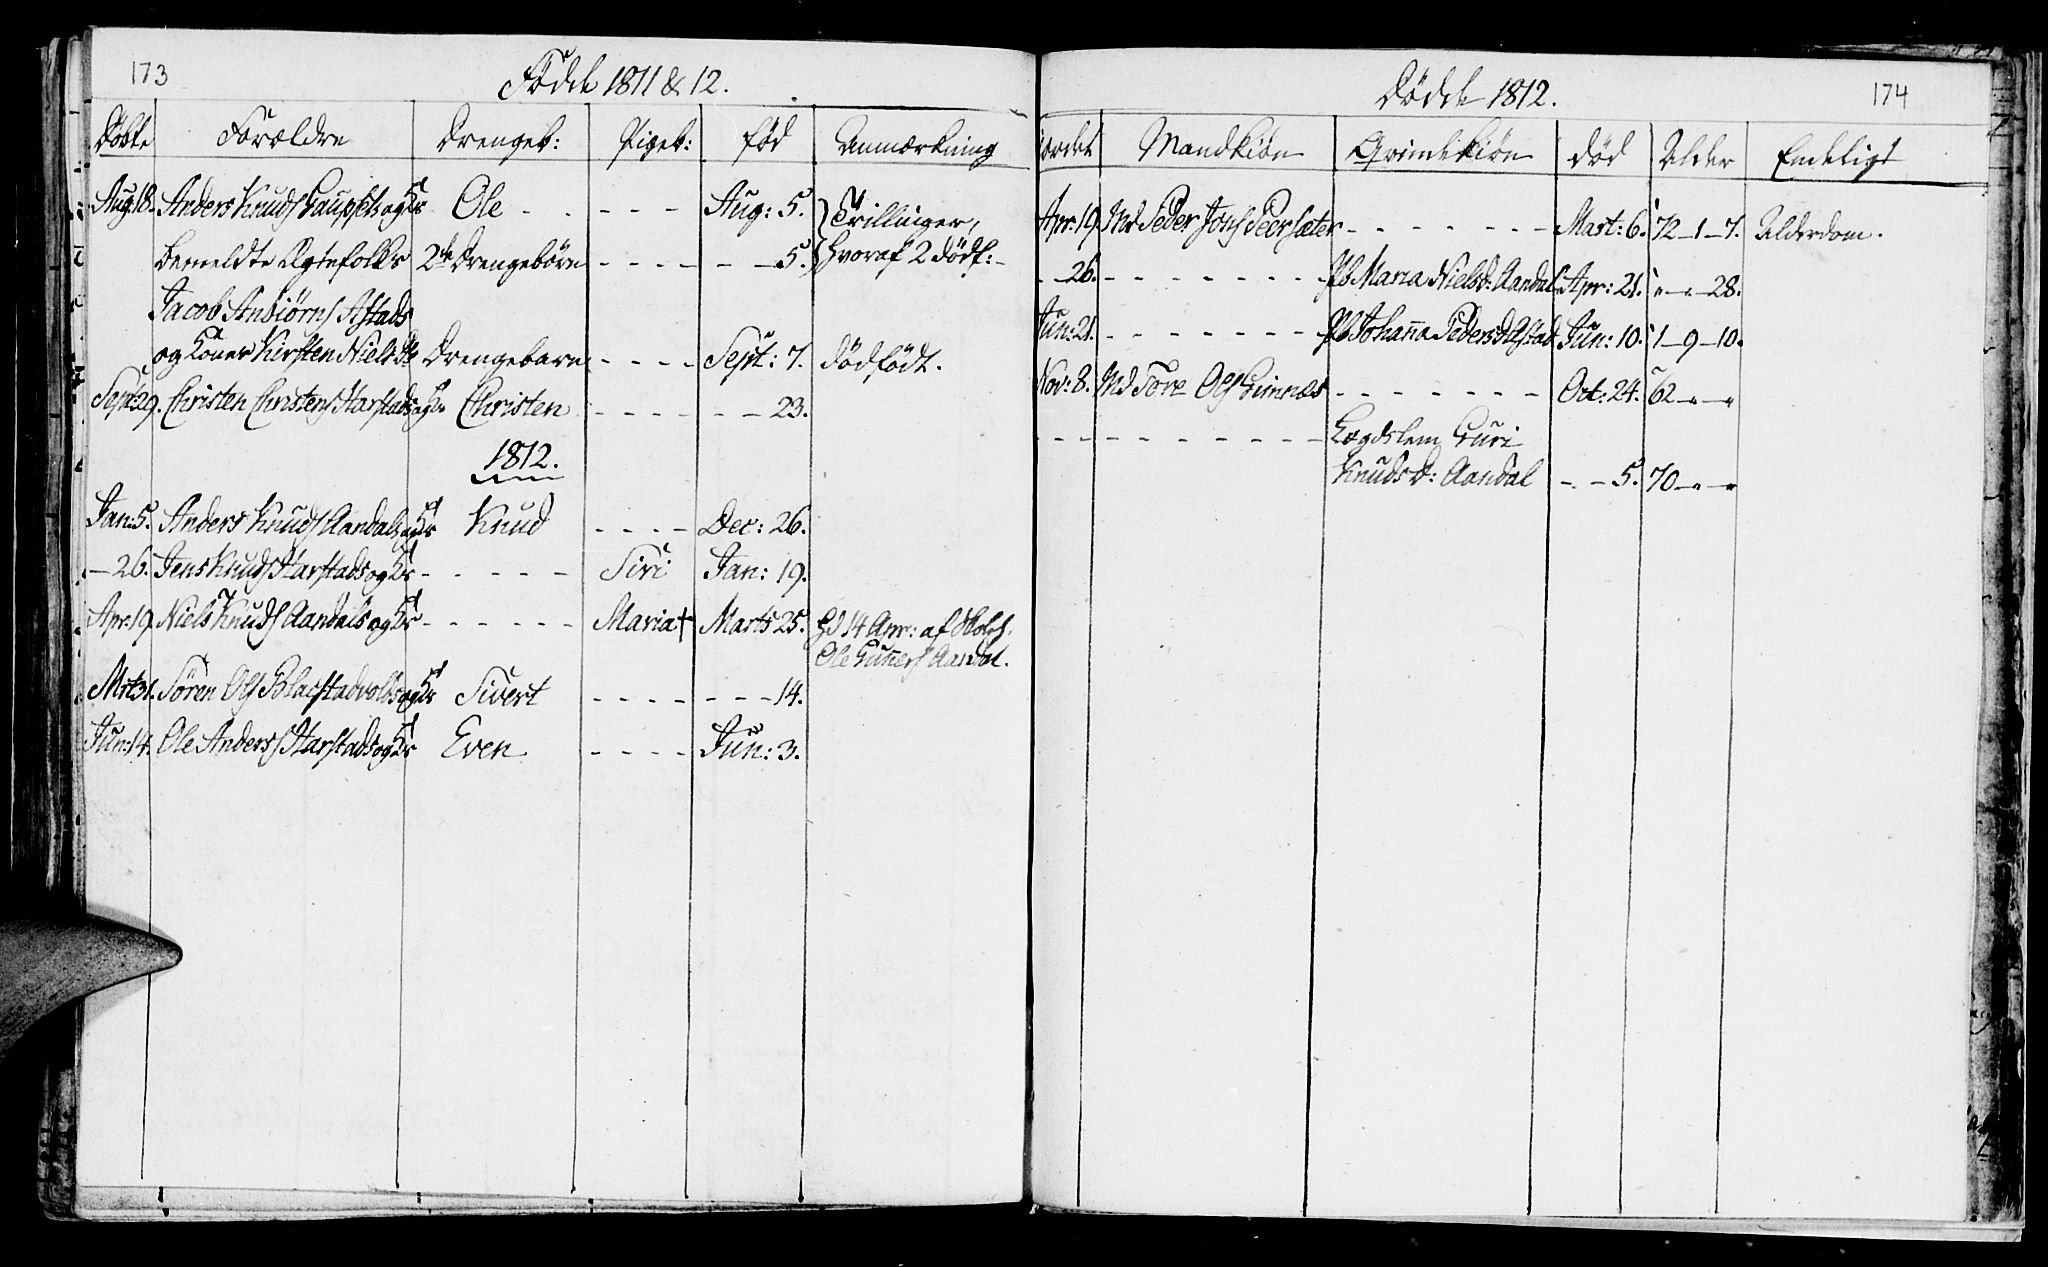 173
Födde 1811 & 12.
Döbte Forældre Drengeb: Pigeb: fød Anmærkning
Aug: 18. Anders Knuds Gaupsets og Kr Ole - - - - - Aug: 5. Trillinger,
bemeldte Ægtefolks 2de Drengebörn - - - - - - 5. hvoraf 2 dödf:
Jacob Anbiörns Astads
og Koner Kirsten Nielsdr Drengebarn - - - - Sept: 7. dödfödt.
Sept: 29. Christen Christens Harstads og Kr Christen - - - - - - 23.
1812.
Jan: 5. Anders Knuds Aandals og Kr Knud - - - - Dec: 26.
- 26. Jens Knuds Harstads og Kr - - - - - Siri Jan: 19.
Apr: 19. Niels Knuds Aandals og Kr - - - - - - Maria † Marts 25. Hd 14 Apr: af
Ole Aandal.
Mrt 31. Sören Ols og Kr Sivert - - - - - - - 14.
Jun: 14. Ole Anders Harstads og Kr Even - - - - Jun: 3.
Dödde 1812.
174
Jordet Mandkiön Qvindekiön död Alder Endeligt
Apr: 19. Md Peder Jons Peersæter - - - - - - - Mart: 6. 72 - 1 - 7. Alderdom.
- - 26. - - - - - - - Pb Maria Nielsd: Aandal Apr: 21. " - " - 28.
Jun: 21. - - - - - - - Pb Johanna Pedersd Astad Jun: 10. 1 - 9 - 10.
Nov: 8. Md Tore Ols Gimnæs - - - - - - - Oct: 24. 62 - " - "
- - - - - - - - - Lægdslem Guri
Knudsd: Aandal - - 5. 70 - " - "